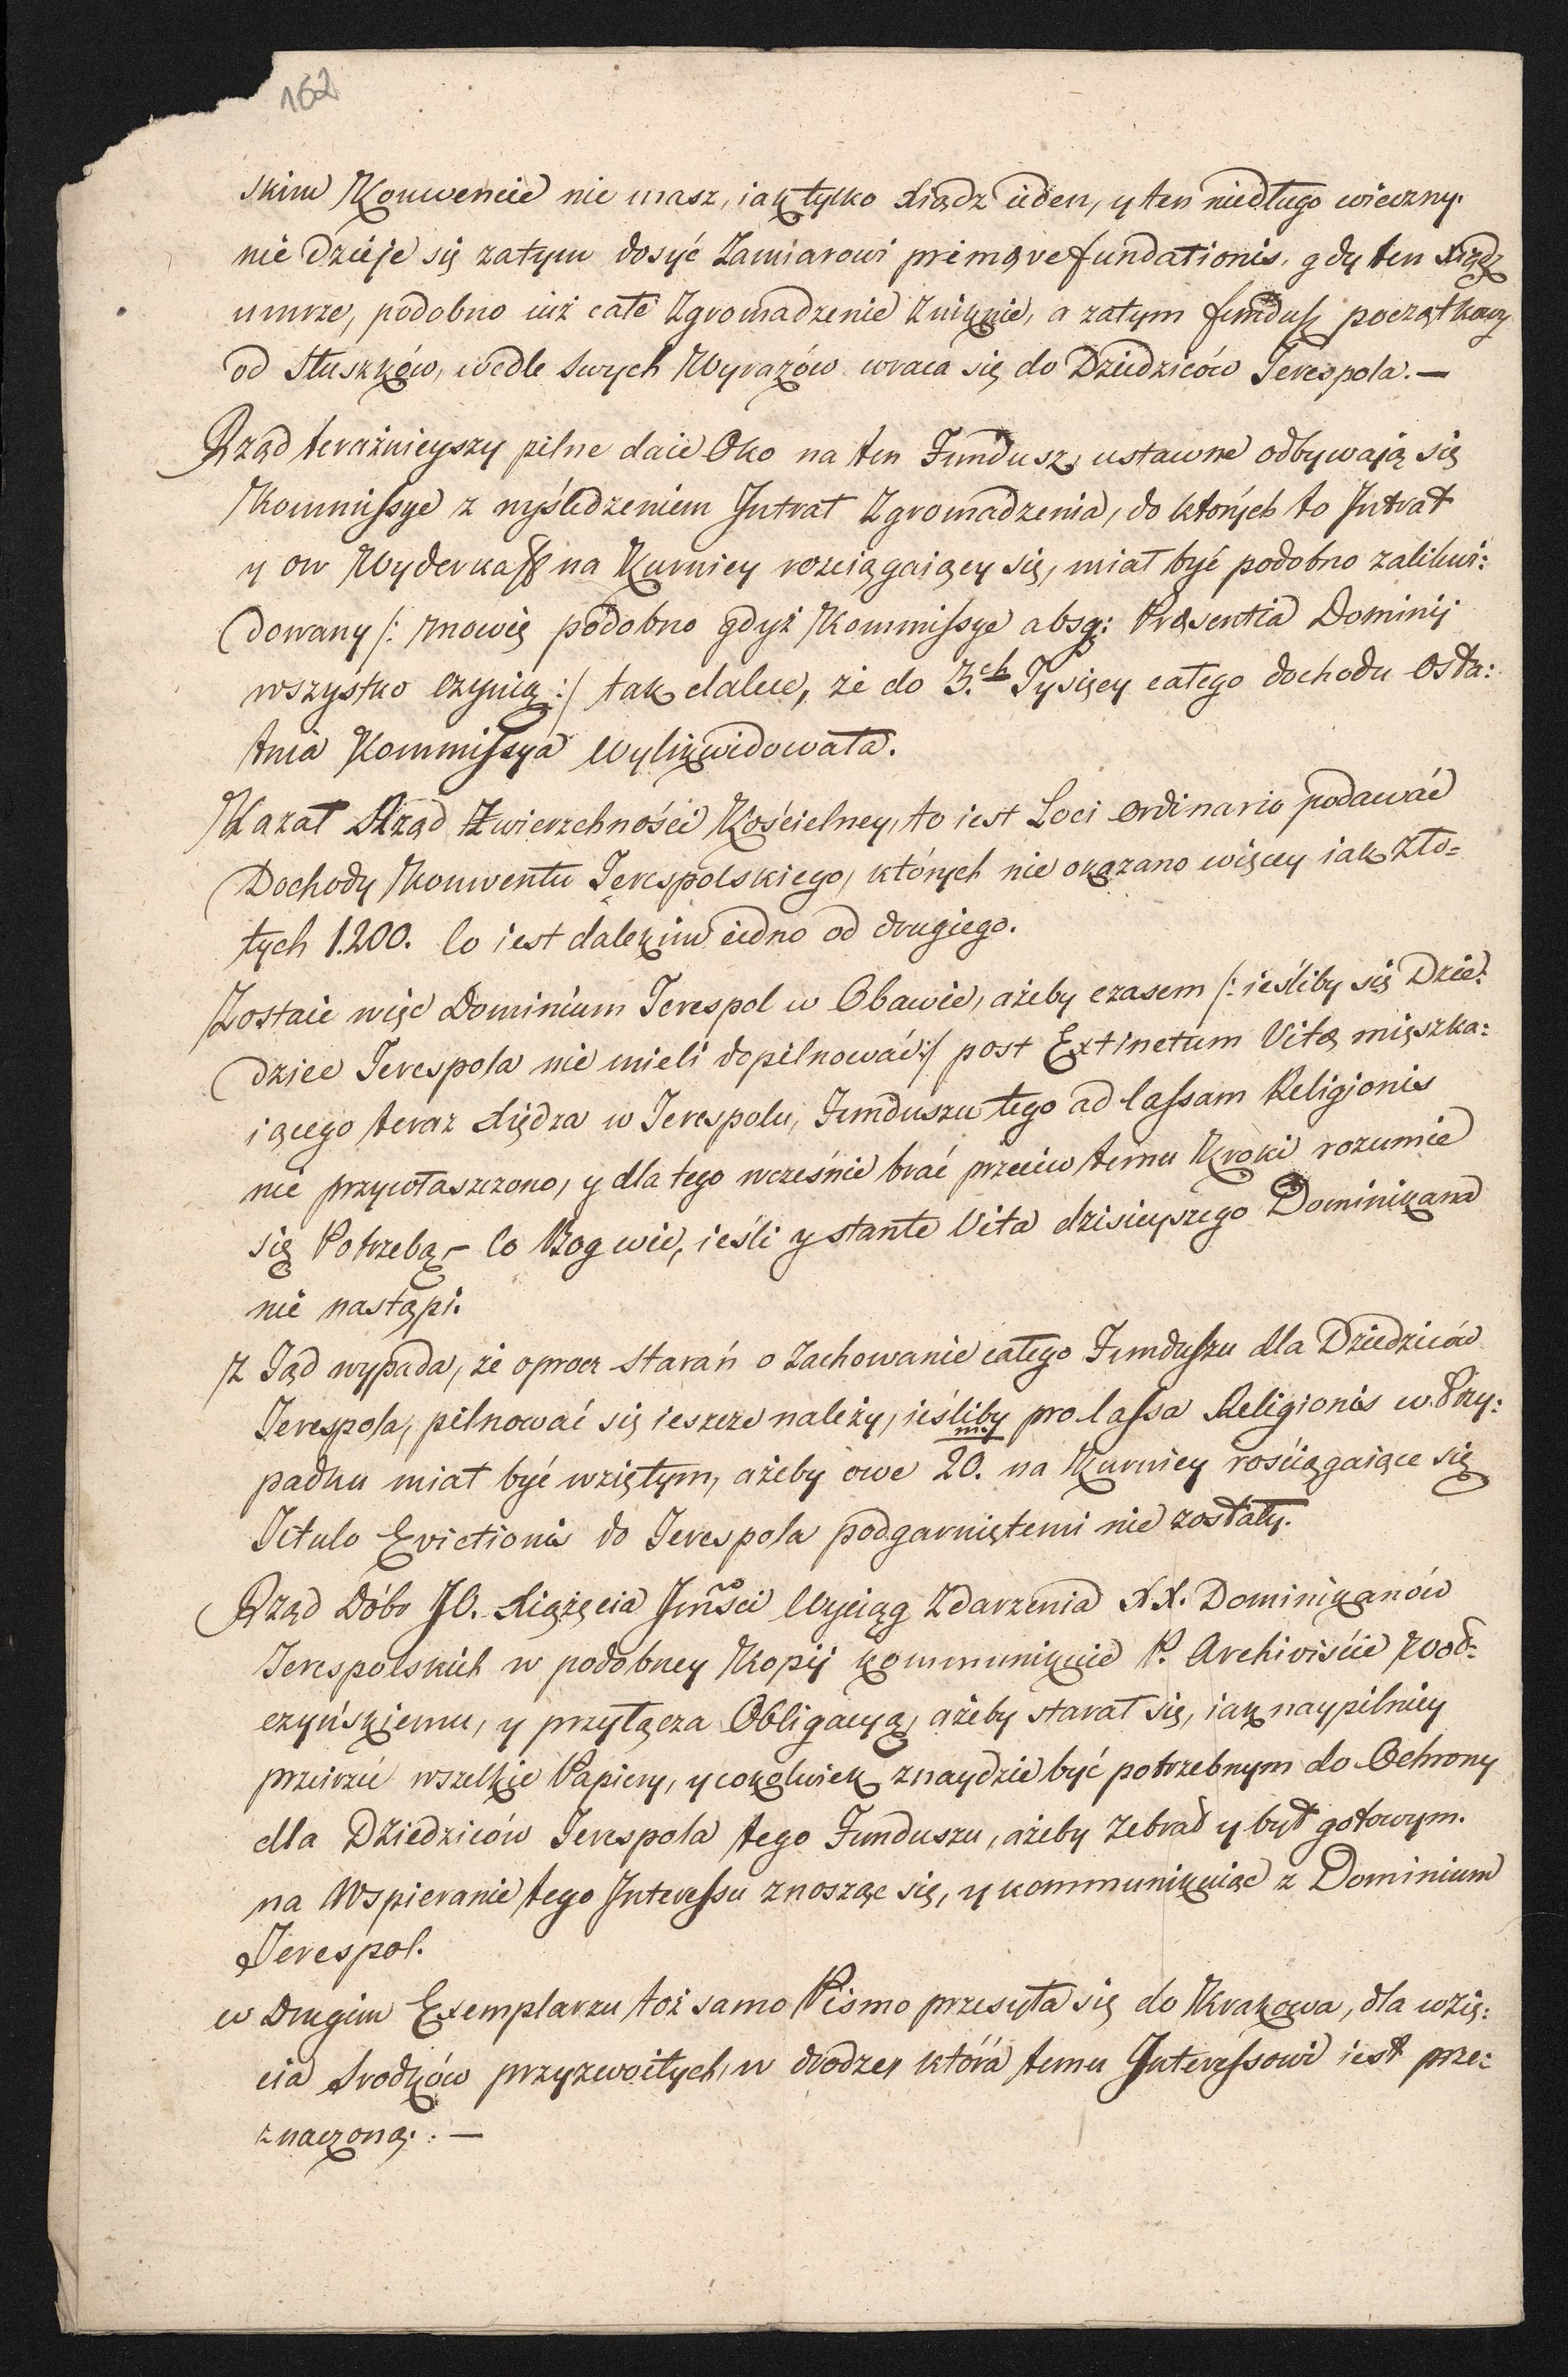 162
skim Konwencie nie masz, iak tylko Xiądz ieden, y ten niedługo wieczny.
nie dzieje się zatym dosyć Zamiarowi primævæ fundationis. gdy ten Xiądz
umrze, podobno iuż całe Zgromadzenie Zniknie, a zatym fundusz początkowy
od Słuszków, wedle Swych Wyrazów wraca się do Dziedziców Terespola. —
Rząd teraźnieyszy pilne daie Oko na ten Fundusz, ustawne odbywają się
Kommissye z wyśledzeniem Intrat Zgromadzenia, do których to Intrat
y ow Wyderkaff na Kurnicy rozciągaiący się, miał być podobno zalikwi:
dowany /: mowię podobno gdyż Kommissye absq: Præsentia Dominij
wszystko czynią :/ tak dalece, że do 3.ch Tysięcy całego dochodu Osta:
tnia Kommissya wylikwidowała.
Kazał Rząd Zwierzchności Kościelney, to iest Loci Ordinario podawać
Dochody Konwentu Terespolskiego, których nie okazano więcey iak Zło=
tych 1.200. Co iest dalekim iedno od drugiego.
Zostaie więc Dominium Terespol w Obawie, ażeby czasem /: ieśliby się Dzie:
dzice Terespola nie mieli dopilnować :/ post Extinctum Vitæ mięszka:
iącego teraz Xiędza w Terespolu, Funduszu tego ad Cassam Religionis
nie przywłaszczono, y dla tego wcześnie brać przeciw temu Kroki rozumie
się Potrzebą, – Co Bog wie, ieśli y stante Vita dzisieyszego Dominikana
nie nastąpi.
Z Tąd wypada, że oprocz starań o Zachowanie całego Funduszu dla Dziedziców
Terespola, pilnować się ieszcze należy, ieśliby pro Cassa Religionis w Przy:
padku miał być wziętym, ażeby owe 20.m. na Kurnicy rościągaiące się
Titulo Evictionis do Terespola podgarniętemi nie zostały.
Rząd Dóbr JO. Xiążęcia Jmści Wyciąg Zdarzenia XX. Dominikanów
Terespolskich w podobney Kopij kommunikuie P. Archiviście
czyńskiemu, y przyłącza Obligacyą, ażeby starał się, iak naypilniey
przeirzeć wszelkie Papiery, y cokolwiek znaydzie być potrzebnym do Ochrony
dla Dziedziców Terespola tego Funduszu, ażeby Zebrał y był gotowym.
na Wspieranie tego Interessu znosząc się, y kommunikuiąc z Dominium
Terespol.
w Drugim Exemplarzu toż samo Pismo przesyła się do Krakowa, dla wzię:
cia Srodków przyzwoitych, w drodze, która temu Interessowi iest prze:
znaczoną. : —